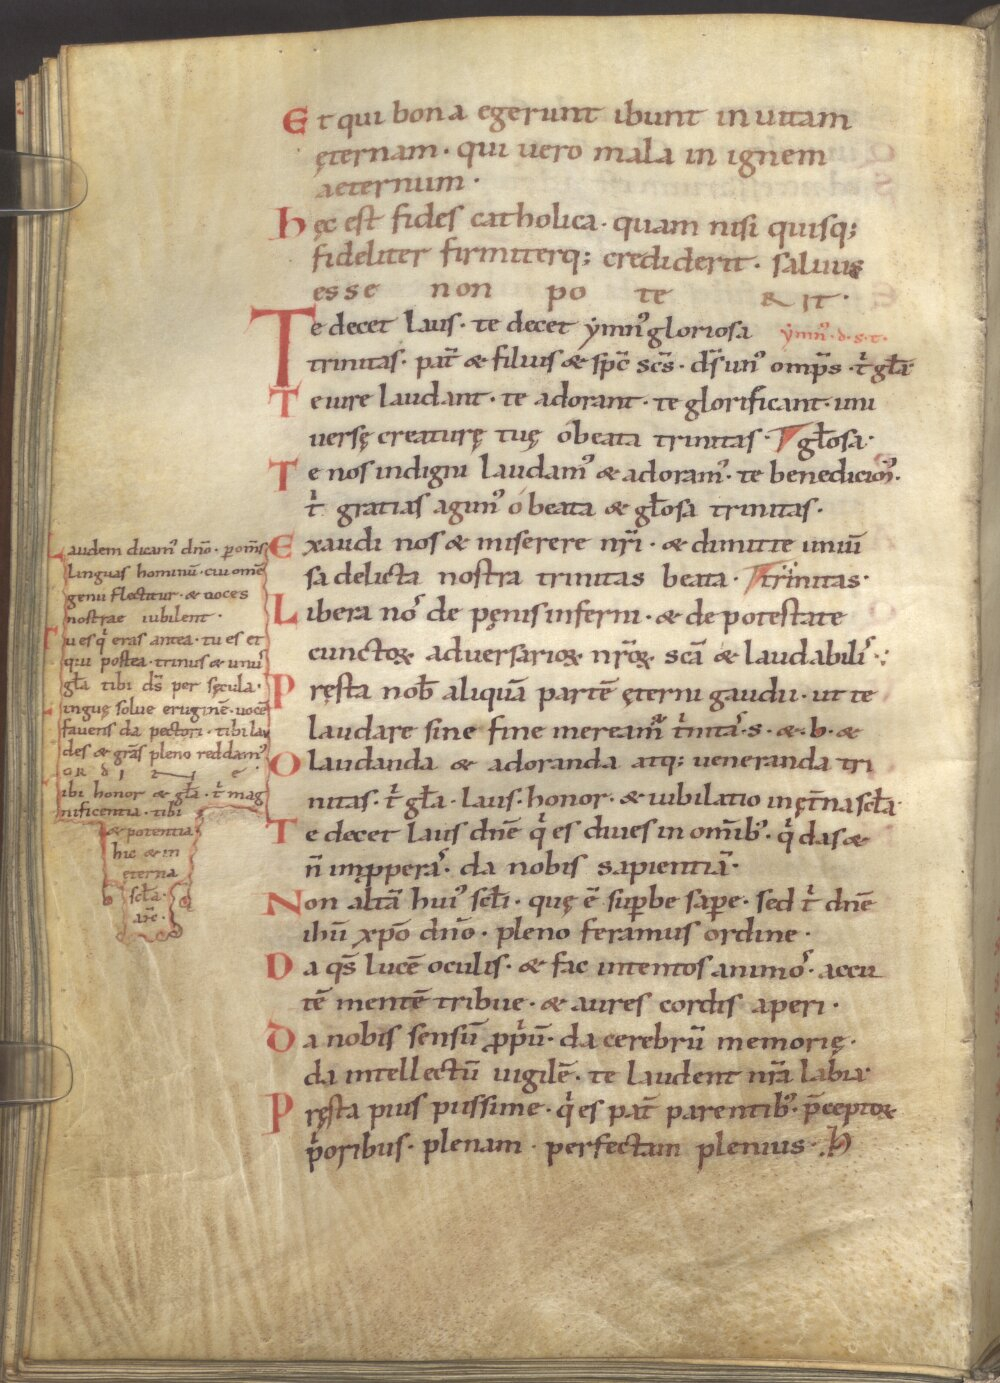 Et qui bona egerunt ibunt in uitam
ęternam · qui uero mala in ignem
aeternum ·
hęc est fides catholica · quam nisi quisq;
fideliter firmiterq; crediderit · saluus
esse non po te R IT ·
Te decet laus · te decet ẏmn᾿ gloriosa ẏmn᾿ · d · s · t ·
trinitas · pat̄ & filius & sp̄c sc̄s · d̄s un᾿ omp̄s · t̍ gl̄a
Te iure laudant · te adorant · te glorificant · uni
uersę creaturę tuę o beata trinitas · gl̄osa ·
Te nos indigni laudam᾿ & adoram᾿ · te benedicim᾿ ·
t̍ gratias agim᾿ ó beata & gl̄osa trinitas ·
Exaudi nos & miserere nr̄i · & dimitte uniū
sa delicta nostra trinitas beata · trinitas ·
Libera no᾿ de pęnis inferni · & de potestate
cunctoꝝ aduersarioꝝ nr̄oꝝ · sc̄a & laudabili᾿ ·
Pręsta nob̄ aliquā partē ęterni gaudii · ut te
laudare sine fine meream᾿ t̍nita᾿ · s · & · b · &
O laudanda & adoranda atq; ueneranda tri
nitas · t̍ gl̄a · laus · honor · & iubilatio in ęt̄na sc̄la
Te decet laus dn̄e q̍ es diues in omib᾿ · q̍ das &
n̄ inpꝑera᾿ · da nobis sapientiā ·
Non altā hui᾿ sc̄li · quę ē suꝑbe saꝑe · sed t̍ dn̄e
ihū xp̄o dn̄o · pleno feramus ordine ·
Da q̄s lucē oculis · & fac intentos animo᾿ · accu
tē mentē tribue · & aures cordis aperi ·
Da nobis sensū ꝓp̍ū · da cerebrū memorię ·
da intellectū uigilē · te laudent nr̄a labia
Pręsta pius piissime · q̍ es pat̄ parentib᾿ · p̄ceptoꝝ
p̍oribus · plenam · perfectam plenius ·
Laudem dicam᾿ dn̄o · ꝑ om̄s
linguas hominū · cui omē
genu flectitur · & uoces
nostrae iubilent ·
Tu es q̍ eras antea · tu es et
qui postea · trinus & unu᾿
gl̄a tibi d̄s per sęcula ·
Linguę solue eruginē · uocē
fauens da pectori · tibi lau
des & gr̄as pleno reddam᾿
OR DI N E
Tibi honor & gl̄a · t̍ mag
nificentia · tibi
& potentia
hic & in
ęterna
sc̄la ·
am̄ ·